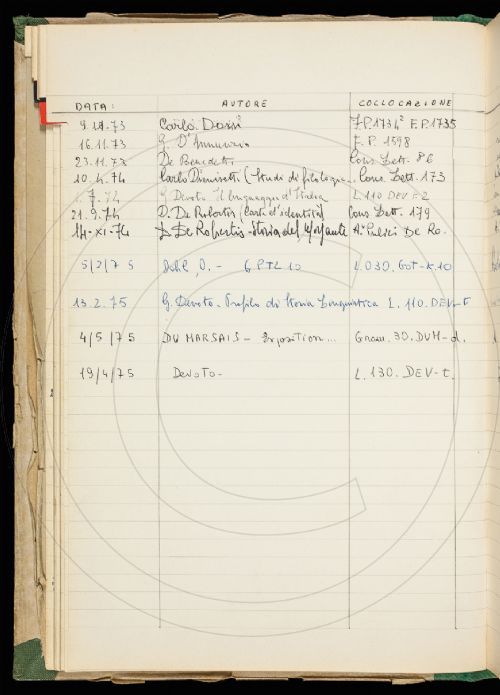 DATA: AUTORE COLLOCAZIONE
9.11.73 Carlo Dossi F.P.1734² F.P.1735
16.11.73 G. D'Annunzio F.P. 1598
23.11.73 De Benedetti Cons. Lett. 86
10.4.74 Carlo Dionisotti (Studi di filologia... Cons. Lett. 173
G. Devoto Il linguaggio d'Italia L.110 DEV
21.9.74 D. De Robertis (Carte d'identità) Cons Lett. 179
14-XI-74 D. De Robertis - Storia del Morgante De Ro.
5/2/75 L.030.
13.2.75 G. Devoto. Profilo di storia linguistica L. 110. DEV-t
4/5/75 DU MARSAIS - Exposition... Gram. 30. DUM-d.
19/4/75 Devoto - L. 130. DEV-t.